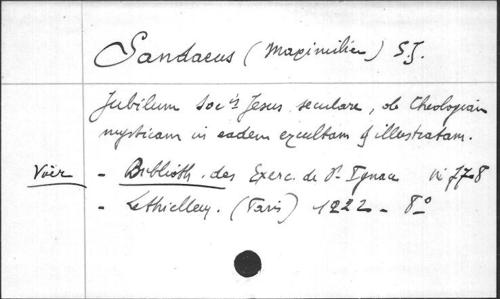 Sandaeus (Maximilien) S.J.
Jubilum Soc^is Jesus seculare, ob Theologiam
mysticam in eadem excultam & illustratam.
Voir - Biblioth. des Exerc. de St. Ignace n° 77-8
- Lethielleux. (Paris) 1922 - 8°